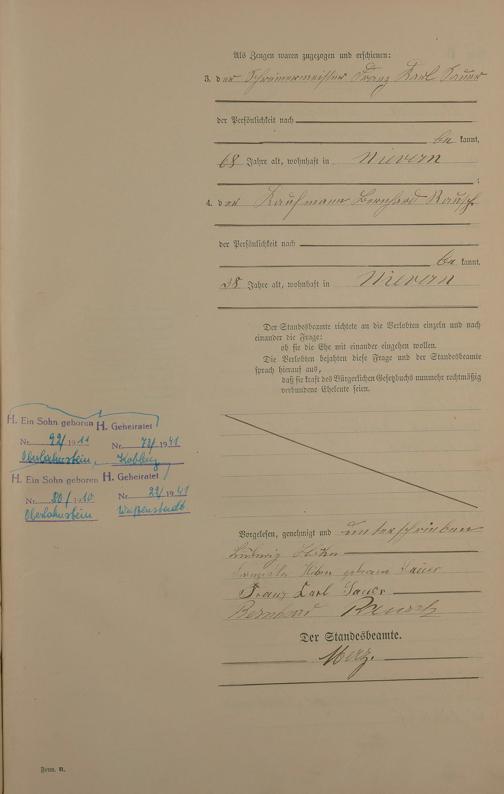 Als Zeugen waren zugezogen und erschienen:
3. der Schreinermeister Franz Karl Sauer
der Persönlichkeit nach
be kannt,
68 Jahre alt, wohnhaft in Nievern
;
4. der Kaufmann Bernhard Rausch
der Persönlichkeit nach
be kannt,
38 Jahre alt, wohnhaft in Nievern
Der Standesbeamte richtete an die Verlobten einzeln und nach
einander die Frage:
ob sie die Ehe mit einander eingehen wollen.
Die Verlobten bejahten diese Frage und der Standesbeamte
sprach hierauf aus,
daß sie kraft des Bürgerlichen Gesetzbuchs nunmehr rechtmäßig
verbundene Eheleute seien.
H. Ein Sohn geboren
Nr. 92/1911
Oberlahnstein,
H. Geheiratet
Nr. 72/1941
Koblenz
H. Ein Sohn geboren
Nr. 80/1910
Oberlahnstein
H. Geheiratet
Nr. 22/1941
Weißenstadt
Vorgelesen, genehmigt und unterschrieben
Ludwig
geborene Sauer
Franz Karl Sauer
Bernhard Rausch
Der Standesbeamte.
Merz.
Form. B.